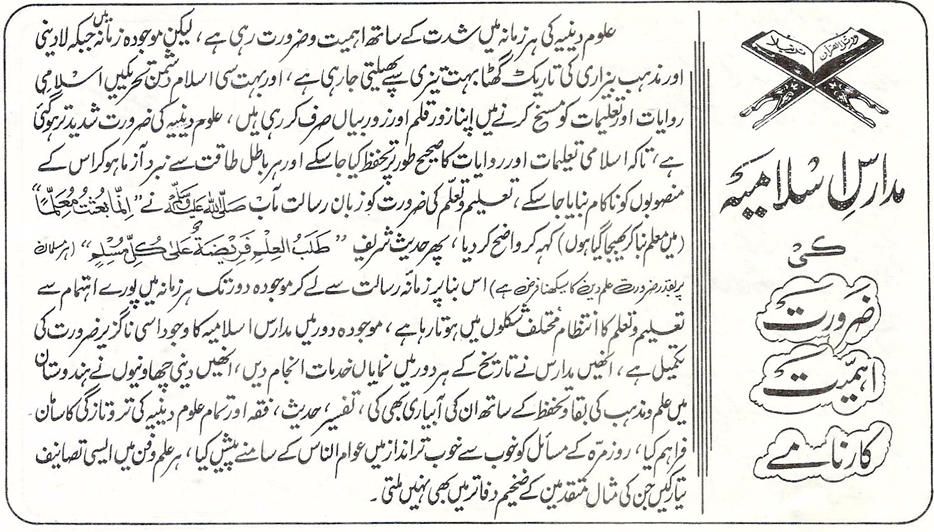 مدارس اسلامیہ
کی
ضرورت
اہمیت
کارنامے
علوم دینیہ کی ہر زمانہ میں شدت کے ساتھ اہمیت و ضرورت رہی ہے، لیکن موجودہ زمانہ میں جبکہ لادینی
اور مذہب بیزاری کی تاریک گھٹا بہت تیزی سے پھیلتی جارہی ہے، اور بہت سی اسلام دشمن تحریکیں اسلامی
روایات اور تعلیمات کو مسخ کرنے میں اپنا زورِ قلم اور زورِ بیاں صرف کر رہی ہیں، علوم دینیہ کی ضرورت شدید تر ہوگئی
ہے، تاکہ اسلامی تعلیمات اور روایات کا صحیح طور پر تحفظ کیا جاسکے اور ہر باطل طاقت سے نبرد آزما ہو کر اس کے
منصوبوں کو ناکام بنایا جاسکے، تعلیم و تعلّم کی ضرورت کو زبان رسالت مآب صلی اللہ علیہ وسلم نے "انما بعثت معلما"
(میں معلم بنا کر بھیجا گیا ہوں) کہہ کر واضح کر دیا، پھر حدیث شریف "طَلَبُ العِلْمِ فَرِيْضَةٌ عَلىٰ كُلِّ مُسْلِم" (ہر مسلمان
پر بقدر ضرورت علم دین کا سیکھنا فرض ہے) اس بنا پر زمانۂ رسالت سے لے کر موجودہ دور تک ہر زمانہ میں پورے اہتمام سے
تعلیم و تعلم کا انتظام مختلف شکلوں میں ہوتا رہا ہے، موجودہ دور میں مدارس اسلامیہ کا وجود اسی ناگزیر ضرورت کی
تکمیل ہے، انھیں مدارس نے تاریخ کے ہر دور میں نمایاں خدمات انجام دیں، انھیں دینی چھاونیوں نے ہندوستان
میں علم و مذہب کی بقا و تحفظ کے ساتھ ان کی آبیاری بھی کی، تفسیر، حدیث، فقہ اور تمام علوم دینیہ کی تر و تازگی کا سامان
فراہم کیا، روز مرّہ کے مسائل کو خوب سے خوب تر انداز میں عوام الناس کے سامنے پیش کیا، ہر علم و فن میں ایسی تصانیف
تیار کیں جن کی مثال متقدمین کے ضخیم دفاتر میں بھی نہیں ملتی۔